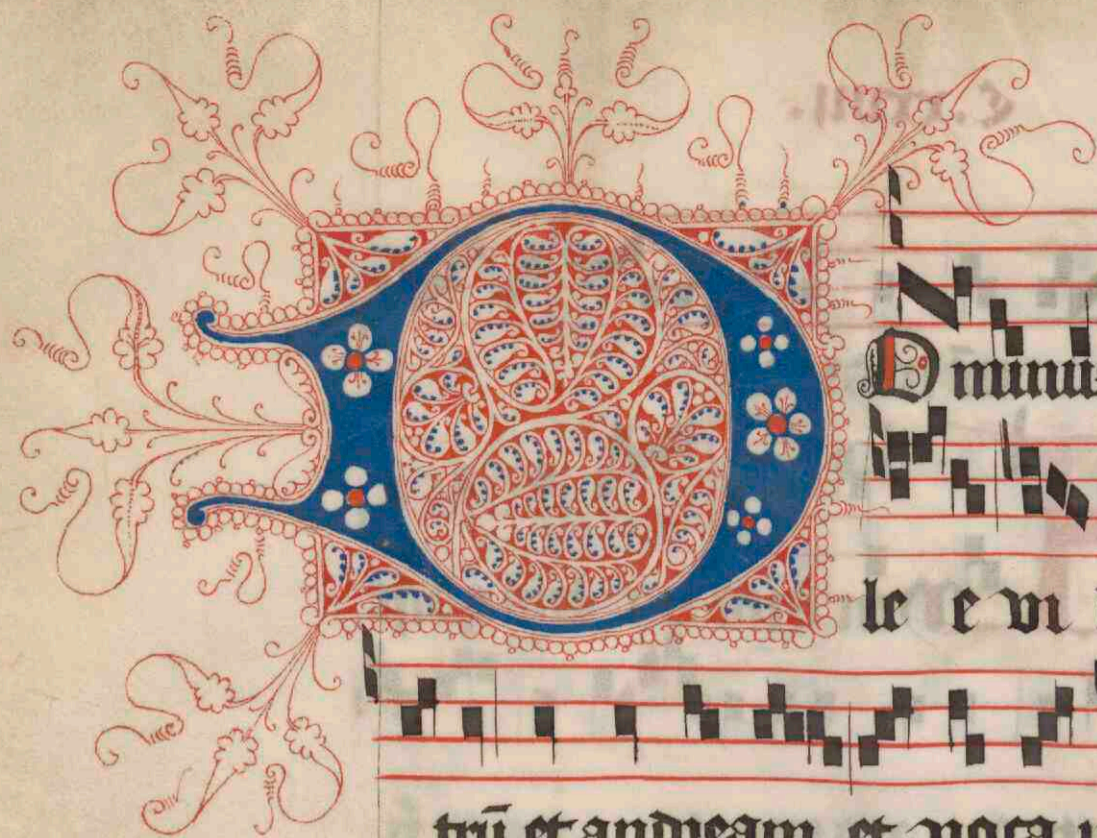 DOminu
le e vi
trū et andream et voca